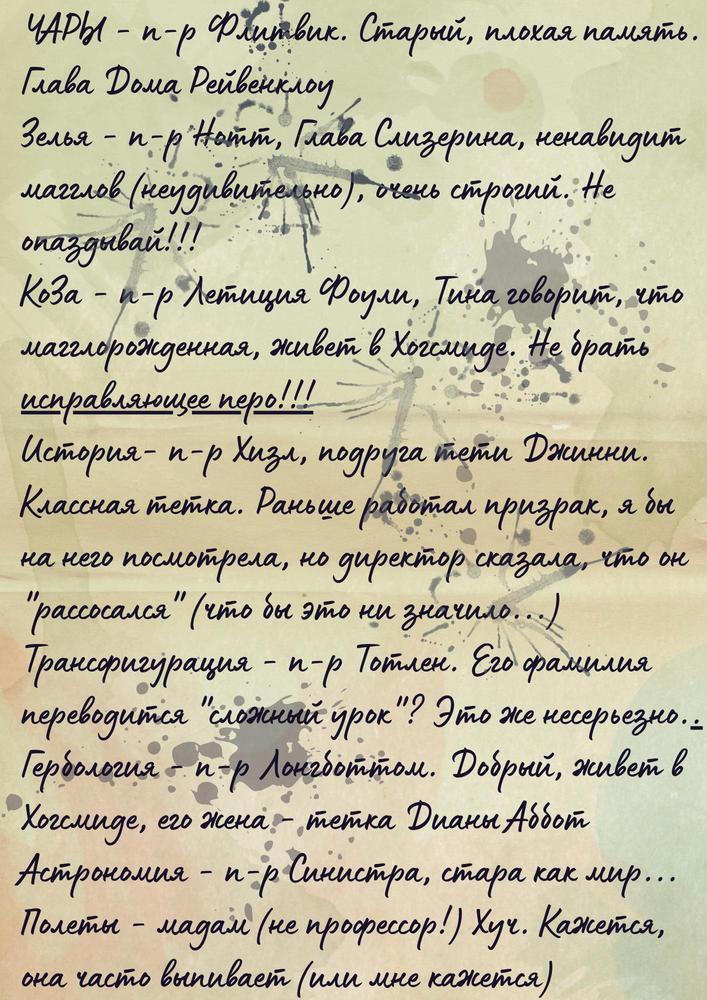 ЧАРЫ - п-р Флитвик. Старый, плохая память.
Глава Дома Рейвенклоу
Зелья - п-р Нотт, Глава Слизерина, ненавидит
магглов (неудивительно), очень строгий. Не
опаздывай!!!
КоЗа - п-р Летиция Фоули, Тина говорит, что
магглорожденная, живет в Хогсмиде. Не брать
исправляющее перо!!!
История- п-р Хизл, подруга тети Джинни.
Классная тетка. Раньше работал призрак, я бы
на него посмотрела, но директор сказала, что он
"рассосался" (что бы это ни значило...)
Трансфигурация - п-р Тотлен. Его фамилия
переводится "сложный урок"? Это же несерьезно..
Гербология - п-р Лонгботтом. Добрый, живет в
Хогсмиде, его жена - тетка Дианы Аббот
Астрономия - п-р Синистра, стара как мир...
Полеты - мадам (не профессор!) Хуч. Кажется,
она часто выпивает (или мне кажется)